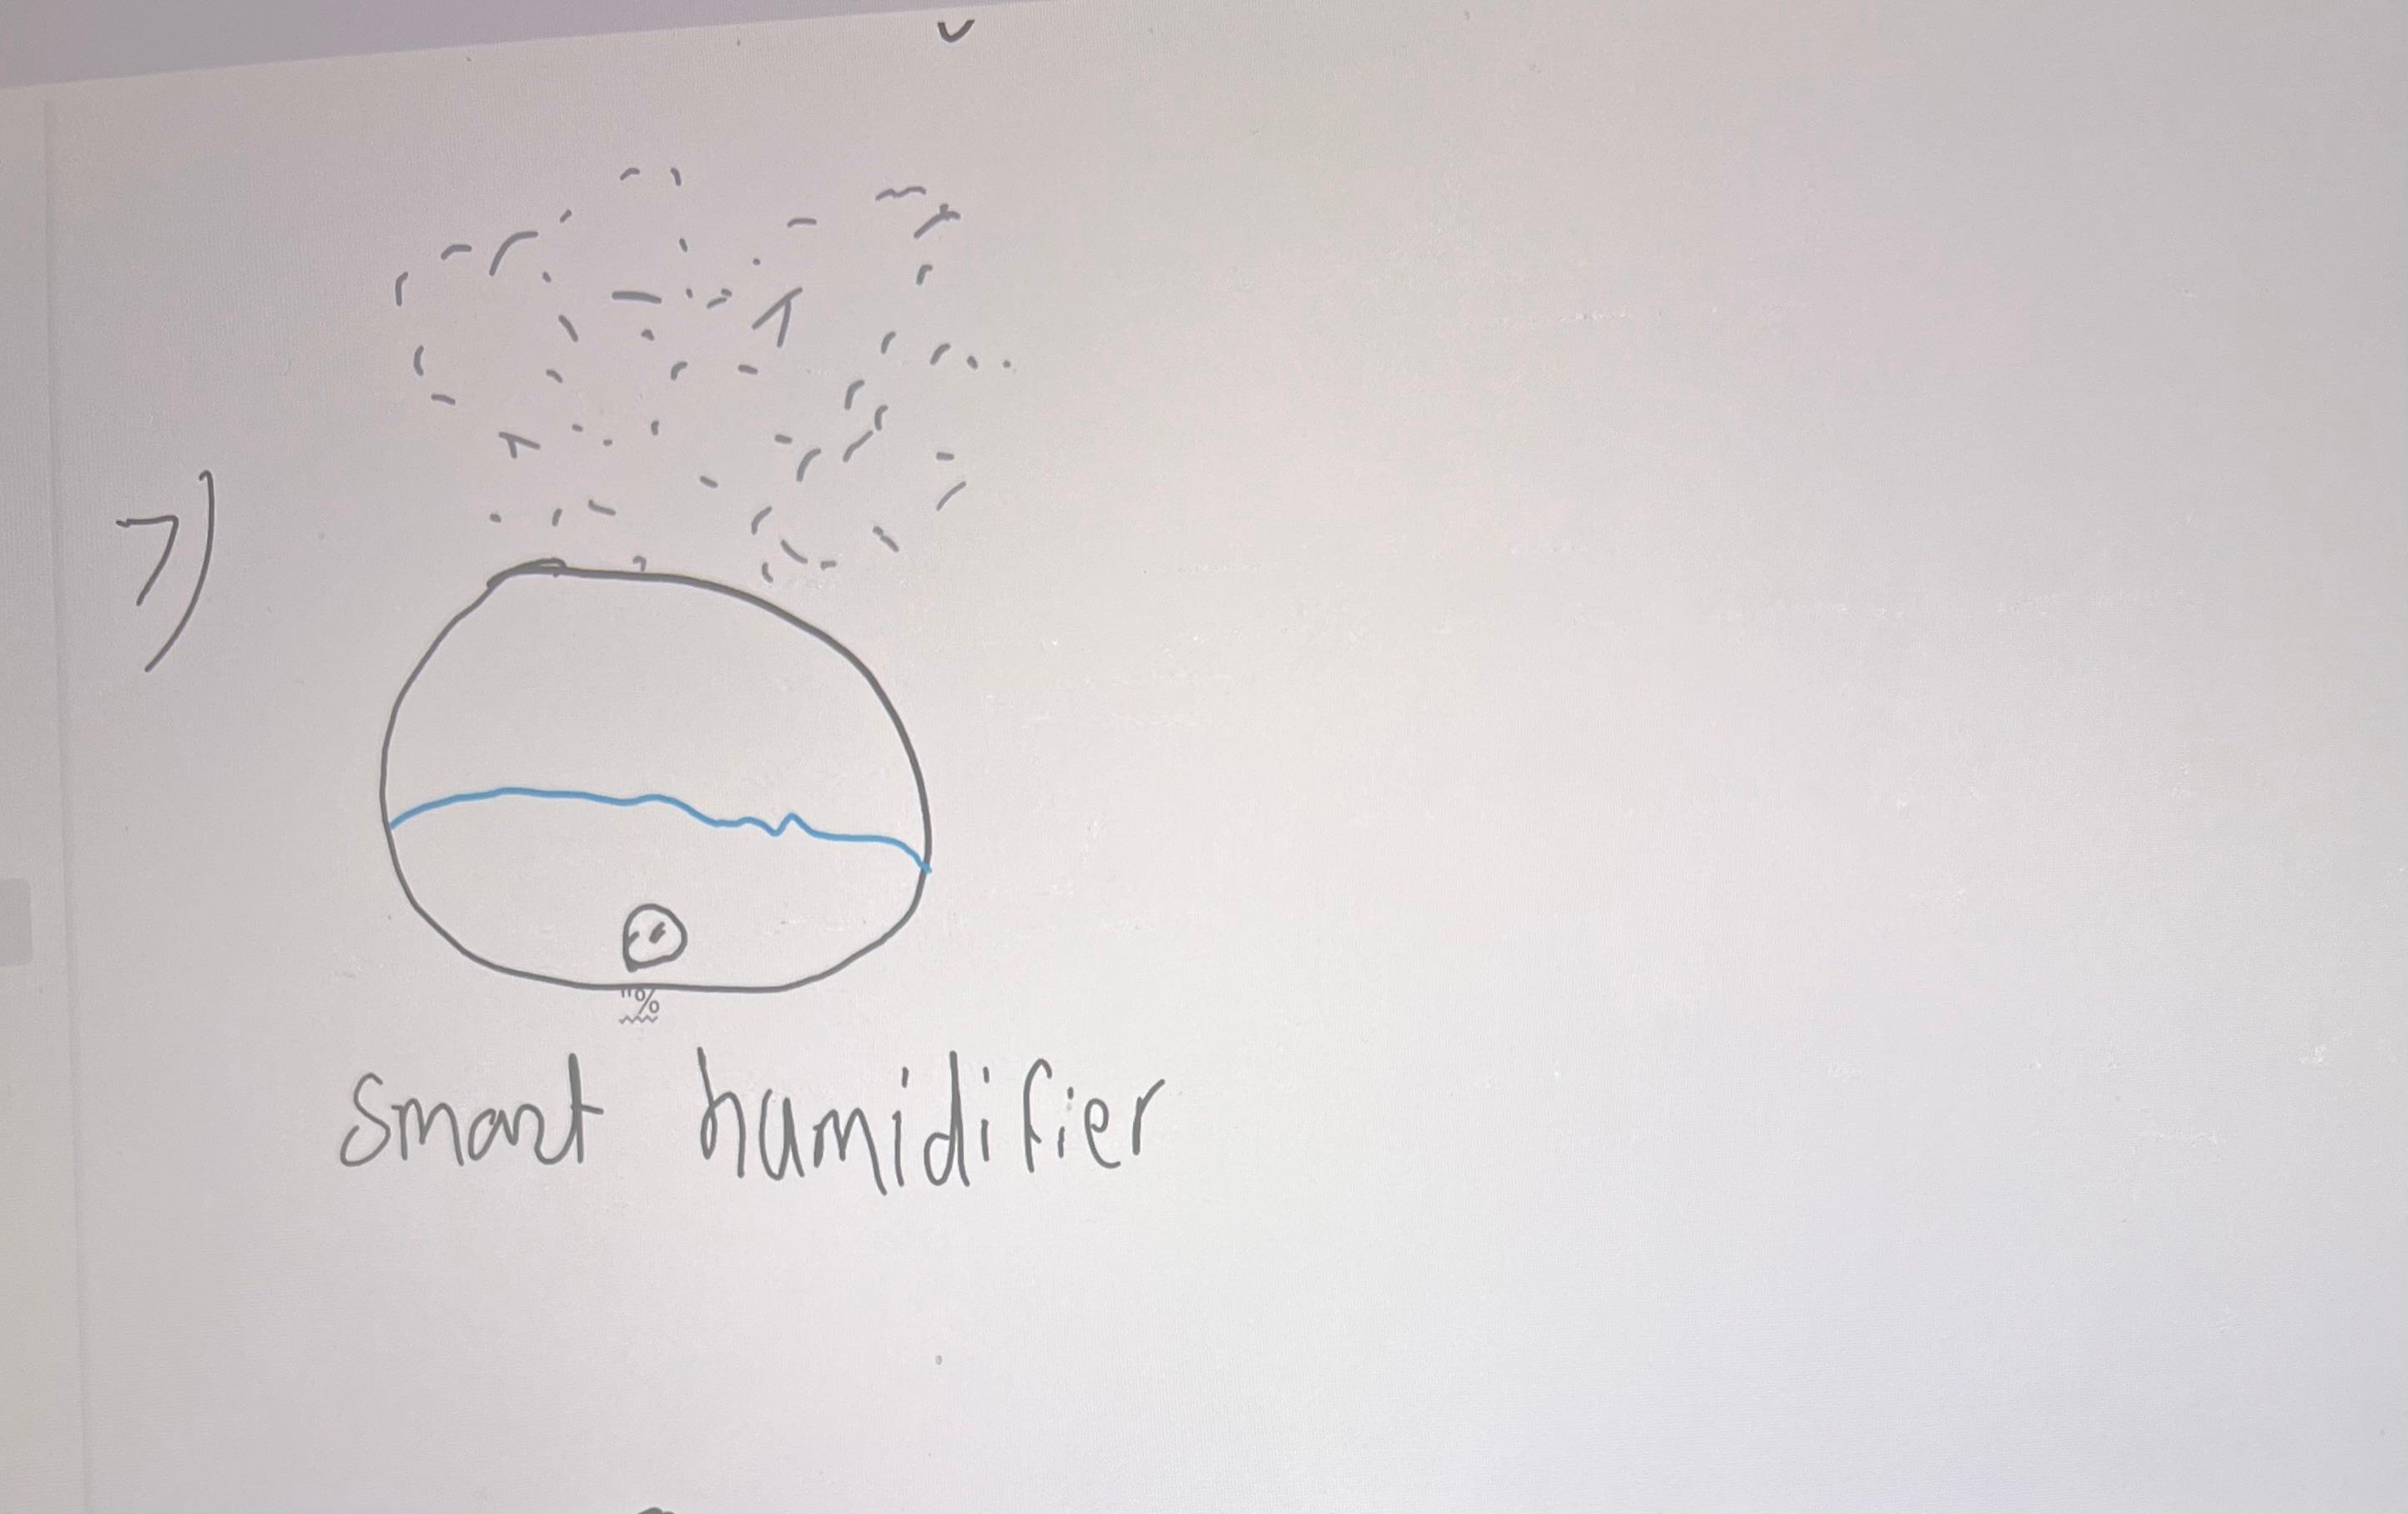 7)
"%
smart humidifier